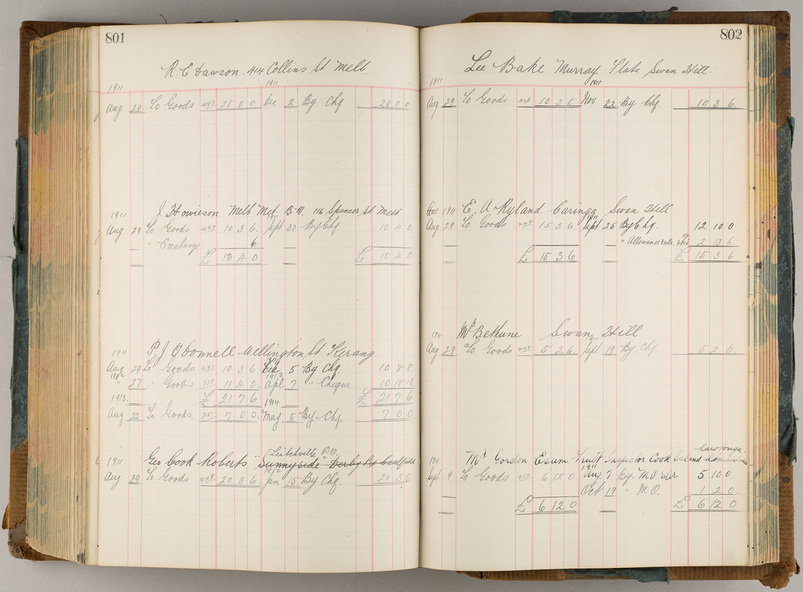 801
R. E. Dawson. 414 Collins St Melb
1911 1911
Aug 29 To Goods 28 0 0 Dec 2 By Chq 28 0 0
1911 J Howieson Melb Met B.W. 116 Spencer St Melb
Aug 29 To Goods 10 3 6 Sept 22 By Chq 10 4 0
" Exchange 6
£ 10 4 0 £ 10 4 0
1911 P. J. O'Donnell Wellington St Kerang
Aug 29 To Goods 10 3 6 5 By Chq 10 8 8
" 27 " Goods 11 4 0 Apl 7 " Cheque 10 18 10
1913 £ 21 7 6 1914 £ 21 7 6
Aug 22 To Goods 7 0 0 May 5 By Chq 7 0 0
Leitchville P.O.
1911 Geo Cook Roberts "Sunnyside" Derby Rd Caulfield
Aug 29 To Goods 20 3 6 Jan 15 By Chq 20 3 6
802
Lee Bake Murray Flats Swan Hill
1911 1911
Aug 29 To Goods 10 3 6 Nov 22 By Chq 10 3 6
1911 E. A. Ryland Swan Hill
Aug 29 To Goods 15 3 6 Sept 25 By Chq 12 10 0
" Allowance 2 13 6
£ 15 3 6 £ 15 3 6
1911 Mr Bethune Swan Hill
Aug 29 To Goods 5 2 6 Sept 19 By Chq 5 2 6
1911 Mr Gordon Fruit Inspector
Sept 9 To Goods 6 12 0 7 By M. Order 5 10 0
Oct 19 " M.O. 1 2 0
£ 6 12 0 £ 6 12 0